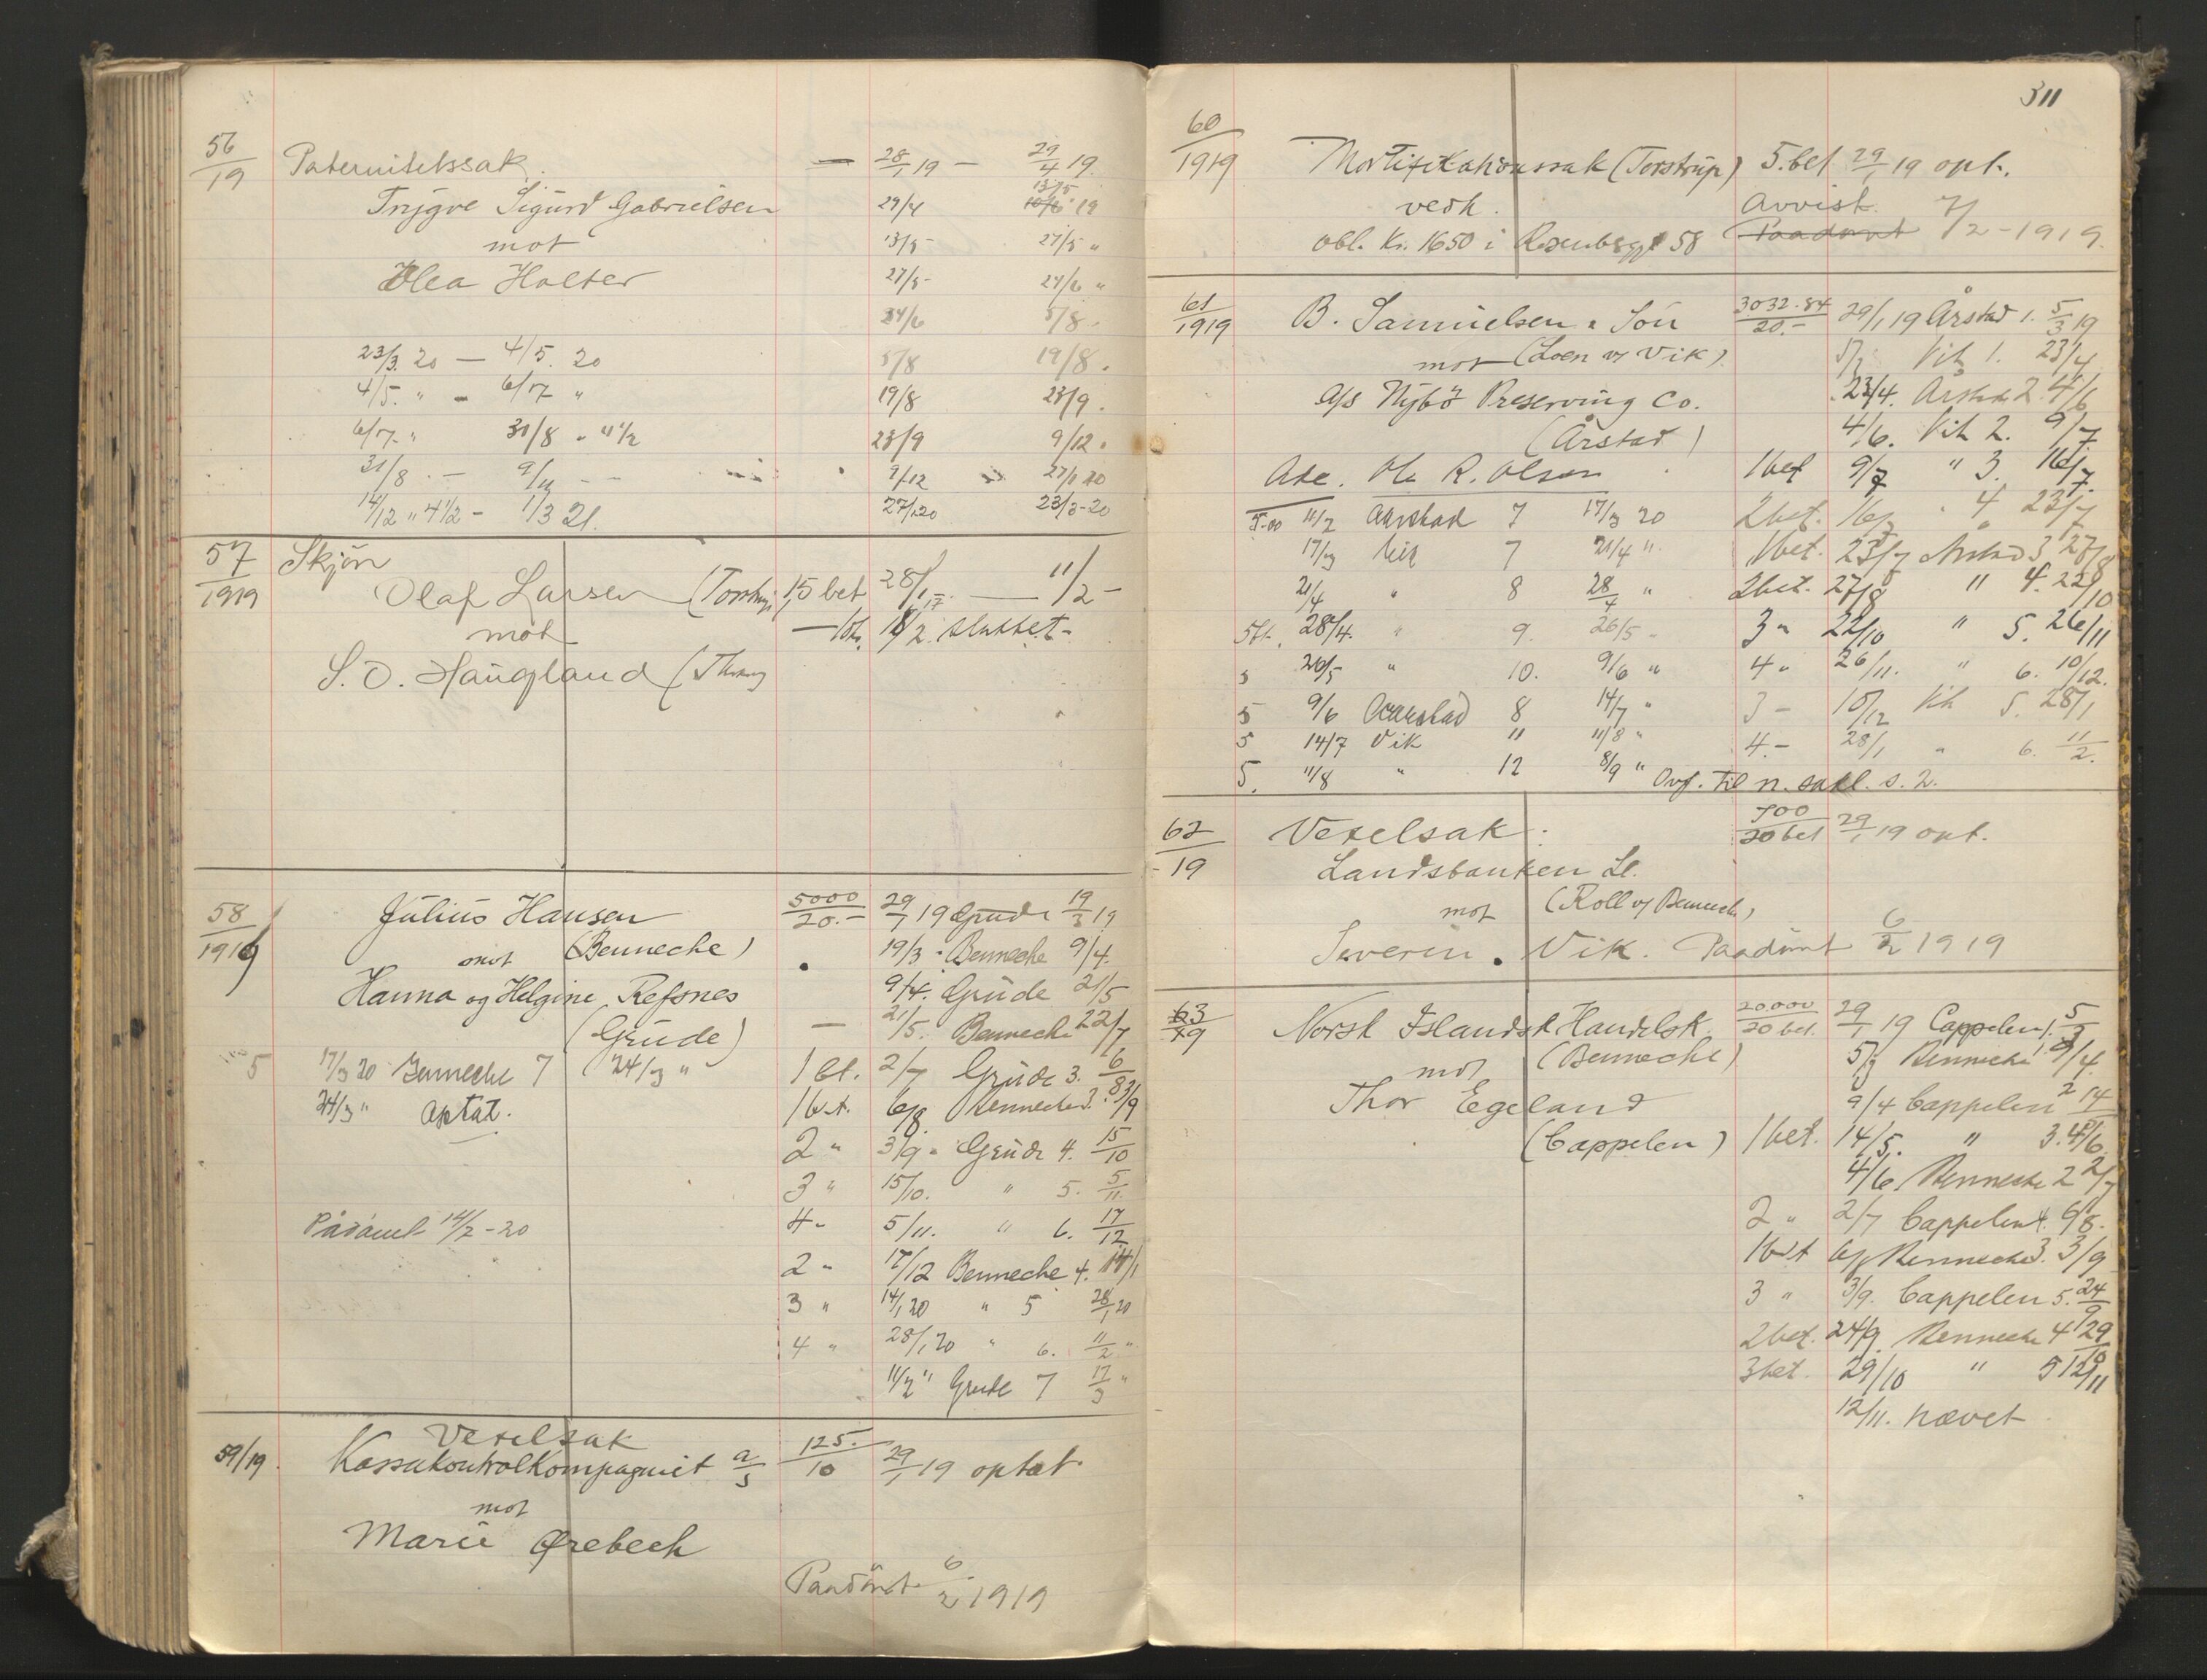 56/19 Paternitetssak. — 28/1 19 — 29/4 19.
Trygve Sigurd Gabrielsen 29/4 13/5 19
mot 13/5 - 27/5 "
Olea Holter 27/5 - 24/6 "
24/6 5/8 -
23/3. 20 — 4/5. 20 5/8 19/8 .
4/5. " - 6/7 " 19/8 23/9 .
6/7 - " 31/8 - " 1/2 23/9 9/12 .
31/8 . — 9/11 - - 9/12 27/1 20
14/12 " 4 1/2 - 1/3 21. 27/1 20 23/3 - 20
57/1919 Skjøn
Olaf Larsen (Torstrup) 15 bet 28/1 — 11/2 -
mot 11/2. sluttet -
S. O. Haugland
58/1919 Julius Hansen 5000/20.- 29/1 19 Grude 19/3 19
mot (Benneche) 19/3 - Benneche 9/4.
Hanna og Helgine Refsnes 9/4. Grude 21/5
(Grude) — 21/5. Benneche 22/7
5 17/3 20 Benneche 7 24/3 " 1 bt. 2/7 Grude 3. 6/8
24/3 " optat. 1 bet. 6/8 Benneche 3. 3/9
2 " 3/9 - Grude 4. 15/10
3 " 15/10. " 5. 5/11.
Pådømt 14/7 - 20 4 - 5/11. " 6. 17/12
2 - 17/12 Benneche 4. 14/1
3 " 14/1 20 " 5 28/1 20
4 " 28/1 20 " 6. 11/2 "
11/2 " Grude 7 17/3 "
Vexelsak
59/19 Kassakontrolkompagniet a/s 125.-/10 29/1 19 optat
mot
Marie Ørebech
Paadømt 6/2 1919
311
60/1919 Mortifikationssak (Torstrup) 5. bet 29/1 19 opt.
vedk. Avvist
obl. Kr. 1650 i Rosenbsggt 58 Paadømt 7/2 - 1919.
61/1919 B. Samuelsen & Søn 3032.84/20.- 29/1 19 Årstad 1. 5/3 19
mot (Loen og Vik) 5/3 Vik 1. 23/4
A/s Nybø Preserving Co. 23/4. Årstad 2. 4/6
(Årstad) 4/6. Vik 2. 9/7.
Adc. Ole R. Olsen 1 bet 9/7 " 3. 16/7.
5.00 11/2 Aarstad 7 17/3 20 2 bet. 16/7 . 4 23/7
17/3 Vik 7 21/4 " 1 bet. 23/7 Årstad 3 27/8
21/4 " 8 28/4 " 2 bet. 27/8 " 4. 22/10
5 bt. 28/4. " 9. 26/5 - 3 " 22/10 " 5. 26/11
5 26/5 " 10. 9/6 " 4 " 26/11. " 6. 10/12.
5 9/6 Aarstad 8 14/7 " 3 - 10/12 Vik 5. 28/1
5 14/7 Vik 11 11/8 " 4 - 28/1 " 6. 11/2.
5. 11/8 " 12 8/9 " Ovf. til n. sakl. s. 2.
62/19 Vexelsak. 700/20 bet 29/1 19 opt.
Landsbanken Ll.
mot (Roll og Bennech)
Severin . Vik. Paadømt 6/2 1919
63/19 Norsk Islandsk Handelsk. 20.000/20 bet. 29/1 19 Cappelen 1. 5/3
mot (Benneche) 5/3 Bennecke 1 9/4.
Thor Egeland 9/4 Cappelen 2 14/5
(Cappelen) 1 bet. 14/5. " 3. 4/6
4/6 Bennecke 2 2/7
2 " 2/7 Cappelen 4. 6/8.
1 bet 6/8 Bennecke 3. 3/9
3 " 3/9. Cappelen 5. 24/9
2 bet. 24/9. Bennecke 4 29/10
3 bet. 29/10 " 5 12/11
12/11. hævet